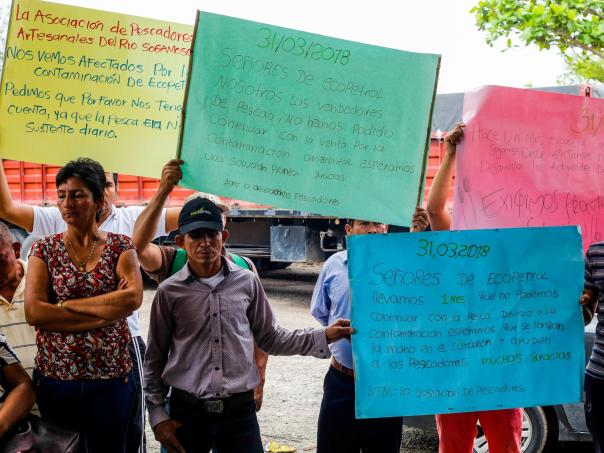 La Asociación de Pescadores
Artesanales del Río Sogamoso
Nos Vemos Afectados Por l
Contaminación De Ecopet
Pedimos que Por favor Nos Tenga
cuenta, ya que la Pesca Era N
Sustento diario.
31/03/2018
Señores De Ecopetrol
Nosotros los Vendedores
De Pescao, No hemos Podido
Continuar con la Venta Por la
Contaminación ambiental esperamos
una solución Pronta gracias
ATM: la asociación de Pescadores
31/
Hace Un Mes
Exigimos
31,03,2018
Señores De Ecopetrol
llevamos 1 mes que no Podemos
Continuar con la Pesca Devido a la
Contaminación esperamos que se Pongan
la mano en el Corazón y ayuden
a los Pescadores. muchas gracias
ATM: la sosiación De Pescadores.